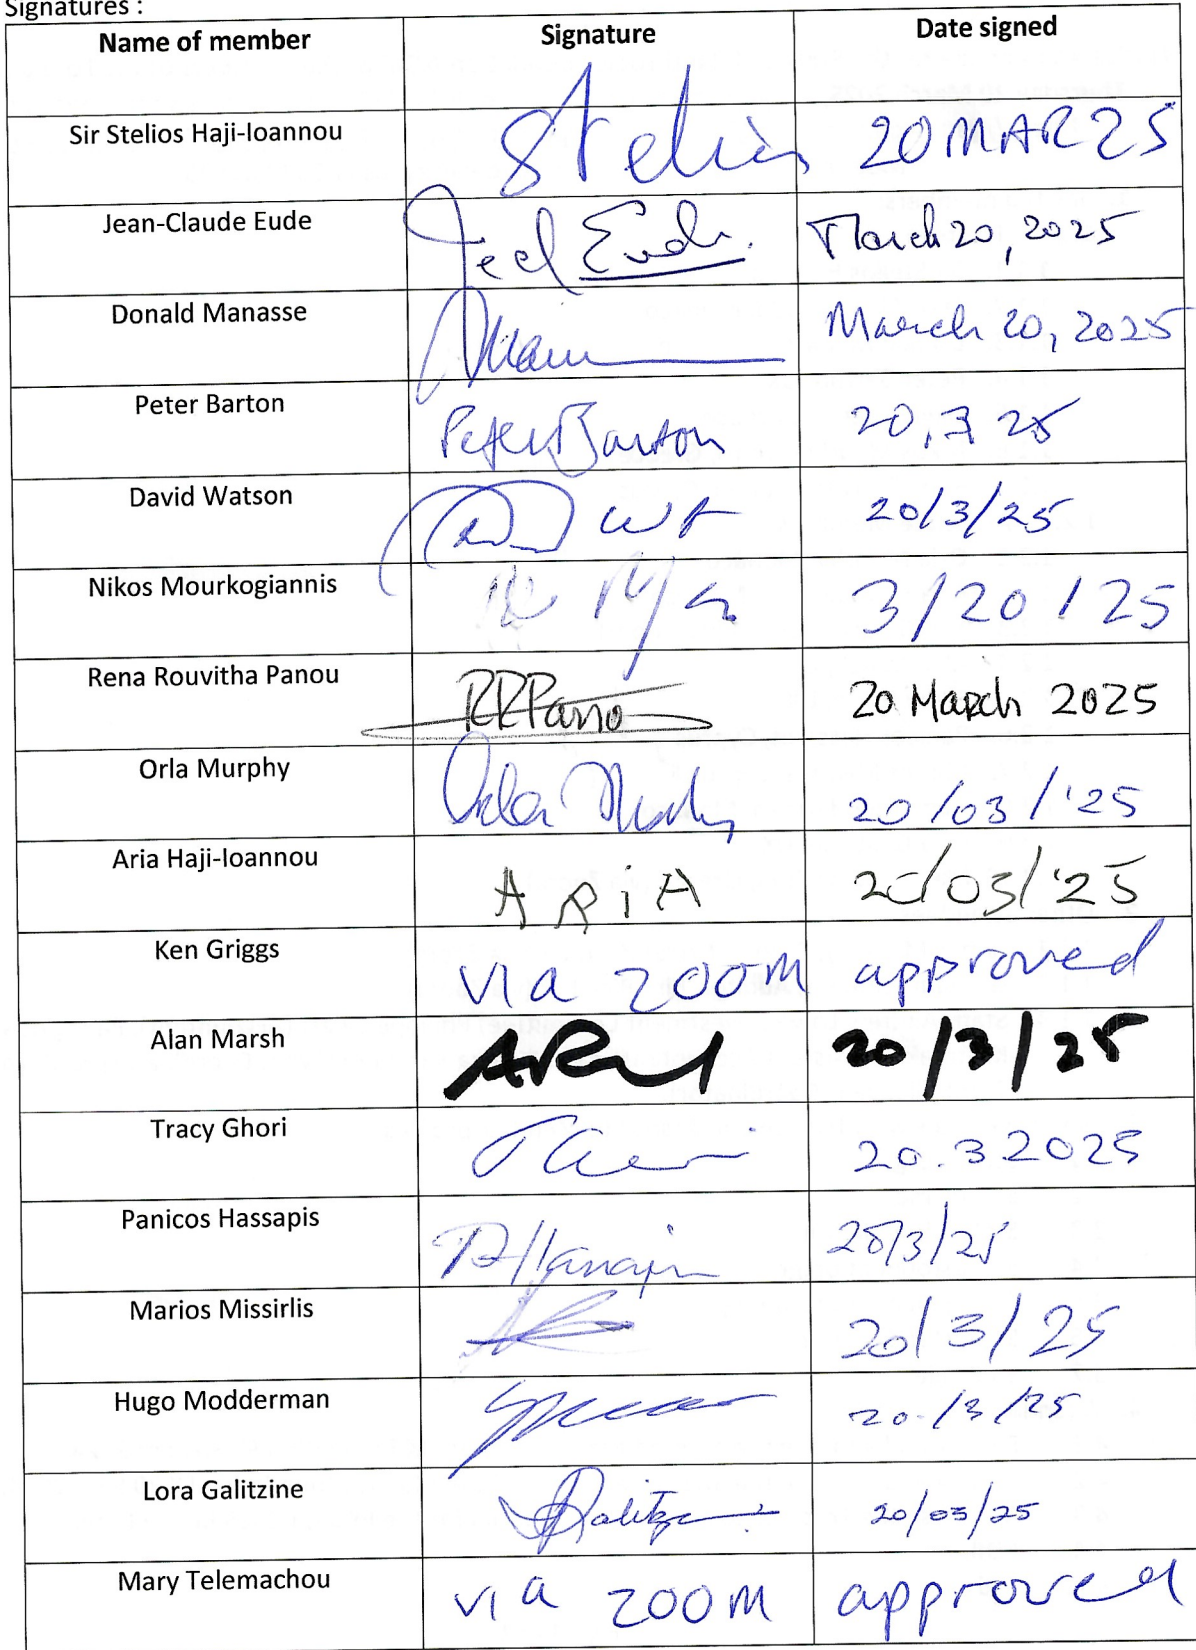 Signatures :
Name of member Signature Date signed
Sir Stelios Haji-Ioannou Stelios 20 MAR 25
Jean-Claude Eude Eude March 20, 2025
Donald Manasse March 20, 2025
Peter Barton Peter Barton 20.3 25
David Watson 20/3/25
Nikos Mourkogiannis 3/20/25
Rena Rouvitha Panou RRPanou 20 March 2025
Orla Murphy Orla Murphy 20/03/'25
Aria Haji-Ioannou ARiA 20/03/'25
Ken Griggs via zoom approved
Alan Marsh 20/3/25
Tracy Ghori 20.3 2025
Panicos Hassapis 20/3/25
Marios Missirlis 20/3/25
Hugo Modderman 20/3/25
Lora Galitzine 20/03/25
Mary Telemachou via zoom approved